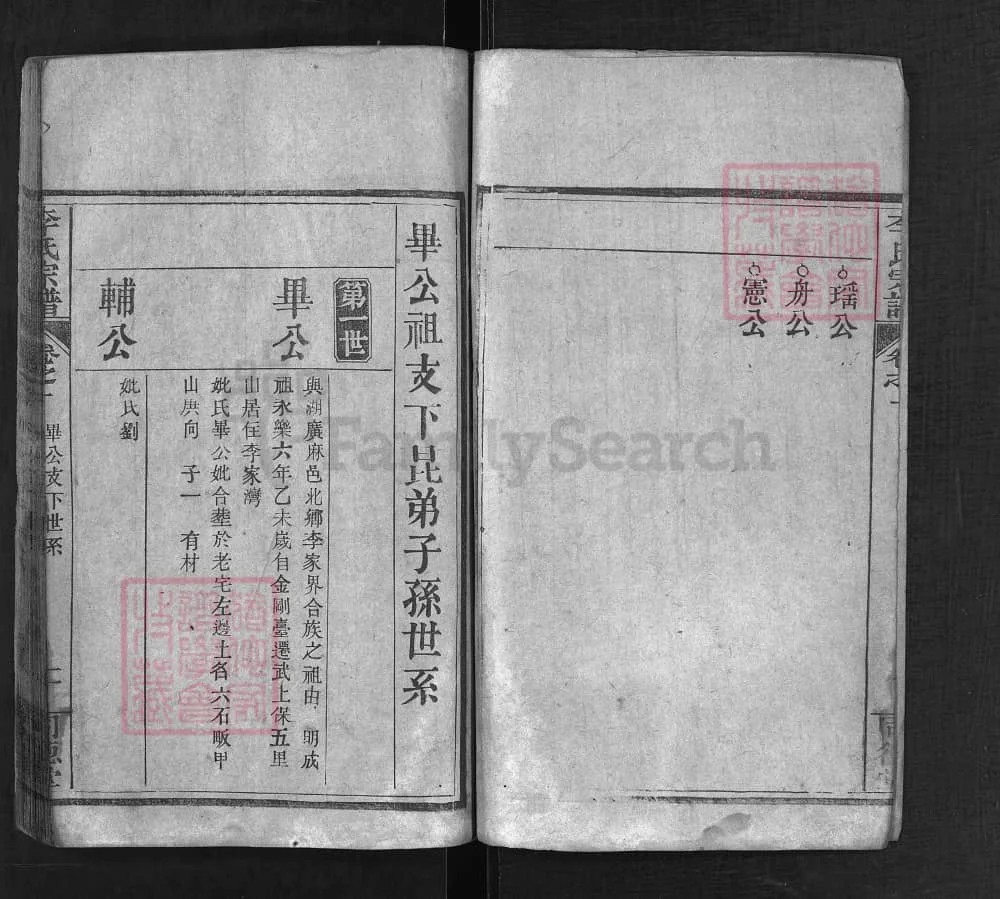 李氏宗譜
卷之一
瑶公
舟公
憲公
畢公祖支下昆弟子孫世系
第一世
畢公
與湖廣麻邑北鄉李家界合族之祖由明成
祖永樂六年乙未歲自金剛臺遷武上保五里
山居住李家灣
妣氏畢公妣合塟於老宅左邊土名六石畈甲
山庚向 子一 有材
輔公
妣氏劉
李氏宗譜
卷之一
畢公支下世系
FamilySearch